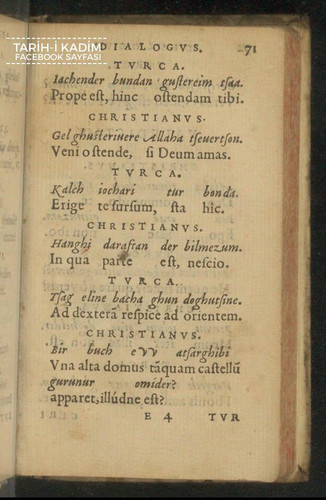 TARİH-İ KADİM
FACEBOOK SAYFASI
DIALOGVS. 71
TVRCA.
Iachender bundan gustereim tsaa.
Prope est, hinc ostendam tibi.
CHRISTIANVS.
Gel ghusteriuere Allaha tseuertson.
Veni ostende, si Deum amas.
TVRCA.
Kalch iochari tur bonda.
Erige te sursum, sta hîc.
CHRISTIANVS.
Hanghi daraftan der bilmezum.
In qua parte est, nescio.
TVRCA.
Tsag eline bacha ghun doghutsine.
Ad dexterã respice ad orientem.
CHRISTIANVS.
Bir buch evv atsarghibi
Vna alta domus tãquam castellũ
gurunur omider?
apparet, illúdne est?
E 4 TVR